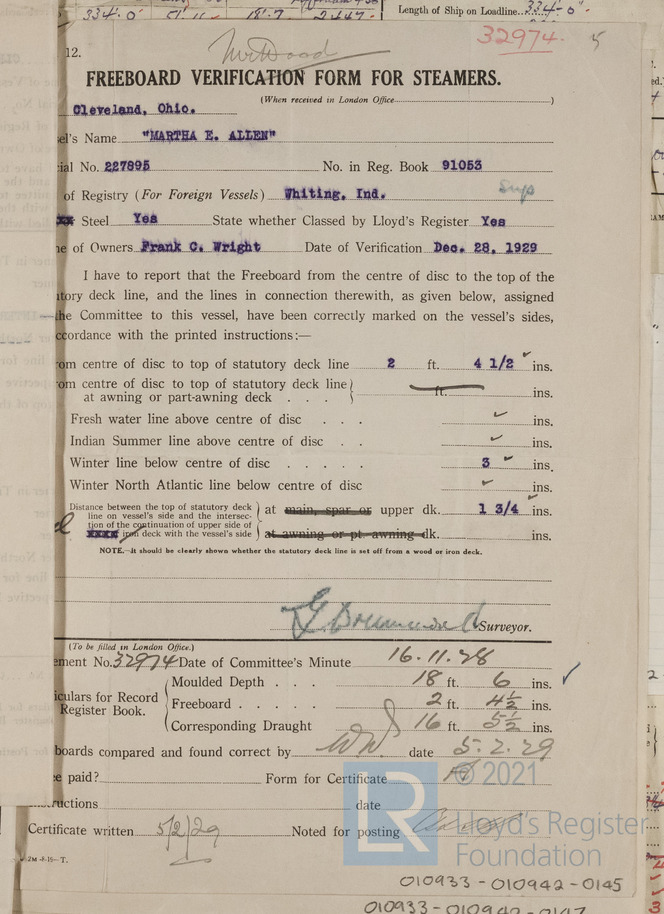 334'-0" 51'-11" 18'-7 2447
Length of Ship on Loadline 334'-0"
32974. 5
12.
FREEBOARD VERIFICATION FORM FOR STEAMERS.
(When received in London Office )
Cleveland, Ohio.
el's Name "MARTHA E. ALLEN"
ial No. 227895 No. in Reg. Book 91053
of Registry (For Foreign Vessels) Whiting, Ind.
Steel Yes State whether Classed by Lloyd's Register Yes
e of Owners Frank C. Wright Date of Verification Dec. 28, 1929
I have to report that the Freeboard from the centre of disc to the top of the
tory deck line, and the lines in connection therewith, as given below, assigned
the Committee to this vessel, have been correctly marked on the vessel's sides,
ccordance with the printed instructions:—
om centre of disc to top of statutory deck line 2 ft. 4 1/2 ins.
om centre of disc to top of statutory deck line
at awning or part-awning deck . . . ft. ins.
Fresh water line above centre of disc . . . ins.
Indian Summer line above centre of disc . . ins.
Winter line below centre of disc . . . . . 3 ins.
Winter North Atlantic line below centre of disc ins.
Distance between the top of statutory deck
line on vessel's side and the intersec-
tion of the continuation of upper side of
iron deck with the vessel's side
at main, spar or upper dk. 1 3/4 ins.
at awning or pt. awning dk. ins.
NOTE.—It should be clearly shown whether the statutory deck line is set off from a wood or iron deck.
Surveyor.
(To be filled in London Office.)
ment No. 32974 Date of Committee's Minute 16.11.28
iculars for Record
Register Book.
Moulded Depth . . . 18 ft. 6 ins.
Freeboard . . . . . 2 ft. 4½ ins.
Corresponding Draught 16 ft. 5½ ins.
boards compared and found correct by date 5.2.29
e paid? Form for Certificate
ructions date
Certificate written 5/2/29 Noted for posting
2M -8-19- T.
LR © 2021
Lloyd's Register
Foundation
010933-010942-0145
010933-010942-0147